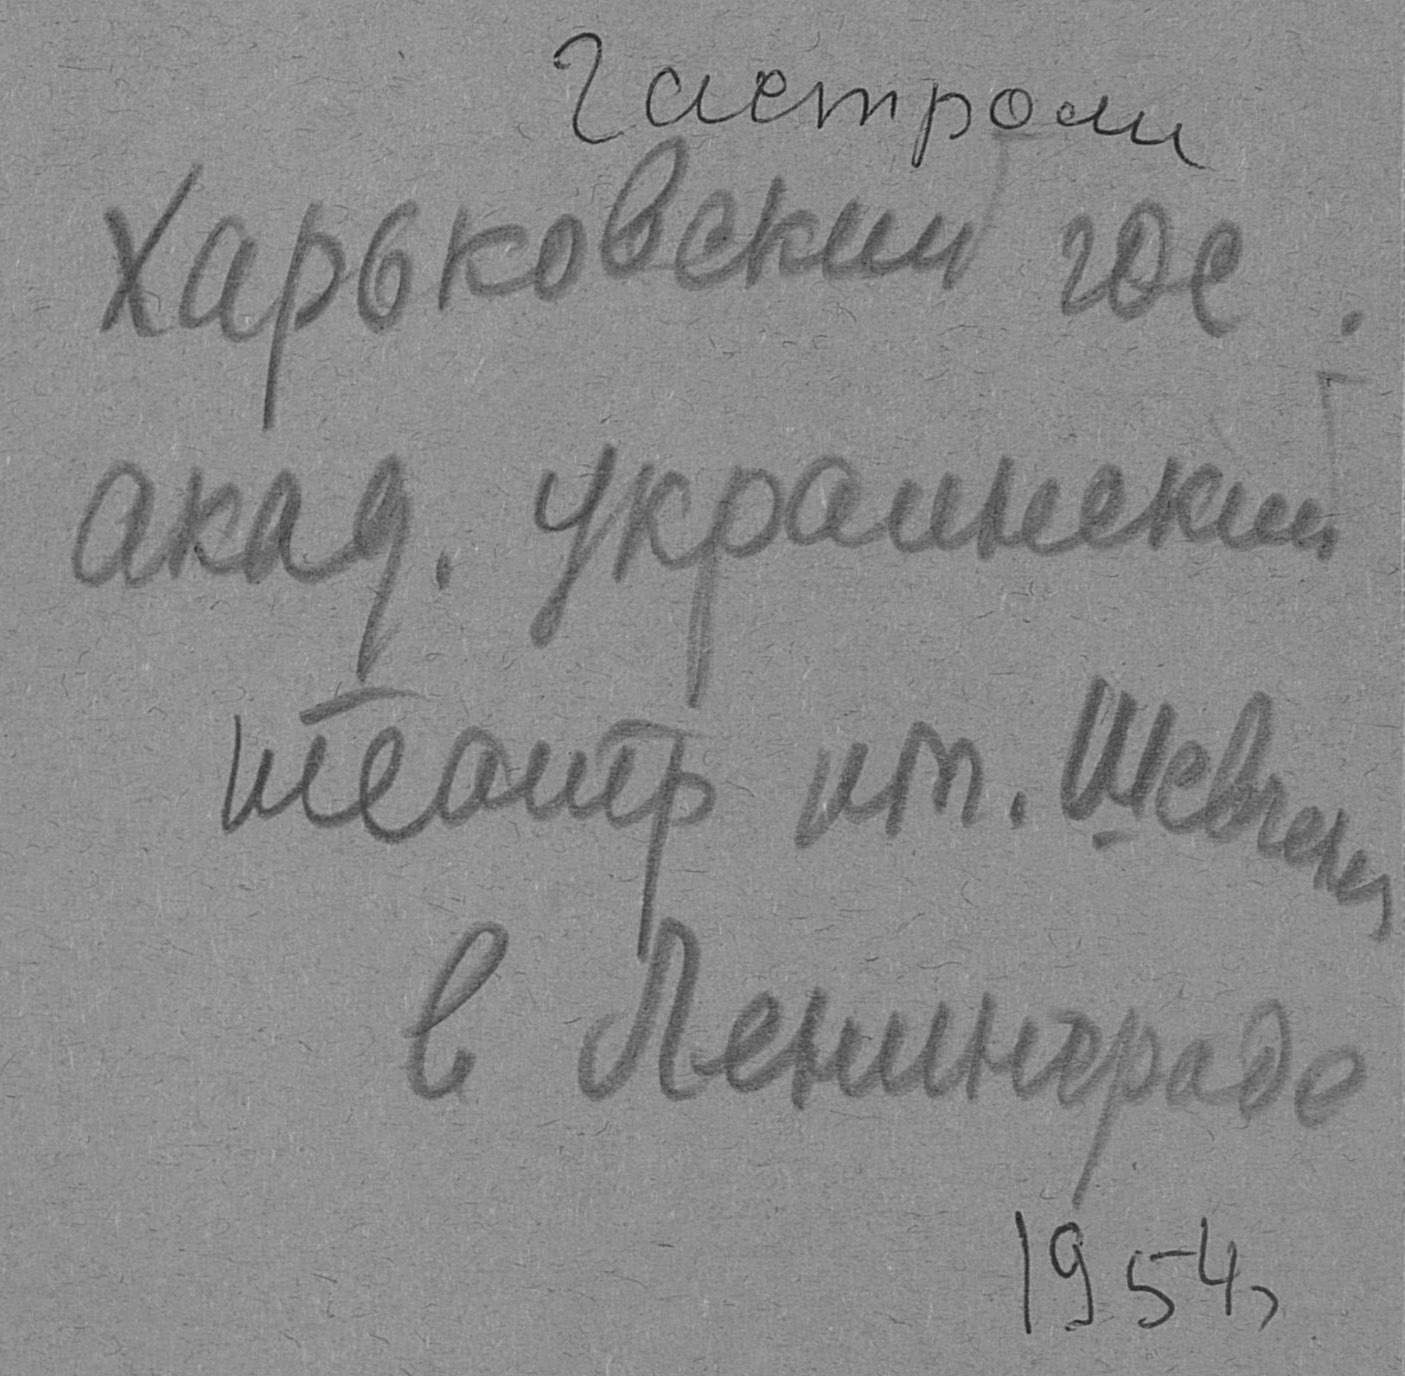 Гастроли
Харьковский гос.
акад. украинский
театр им. Шевченко
в Ленинграде
1954,